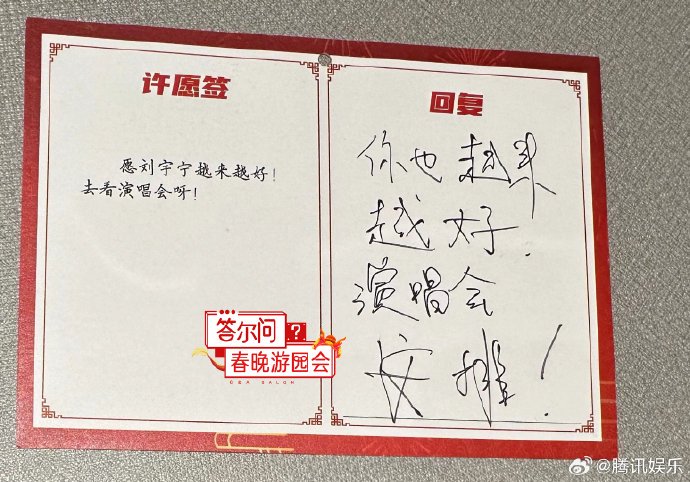 许愿签
愿刘宇宁越来越好！
去看演唱会呀！
回复
你也越来
越好
演唱会
安排！
答尔问？
春晚游园会
Q&A SALON
@腾讯娱乐